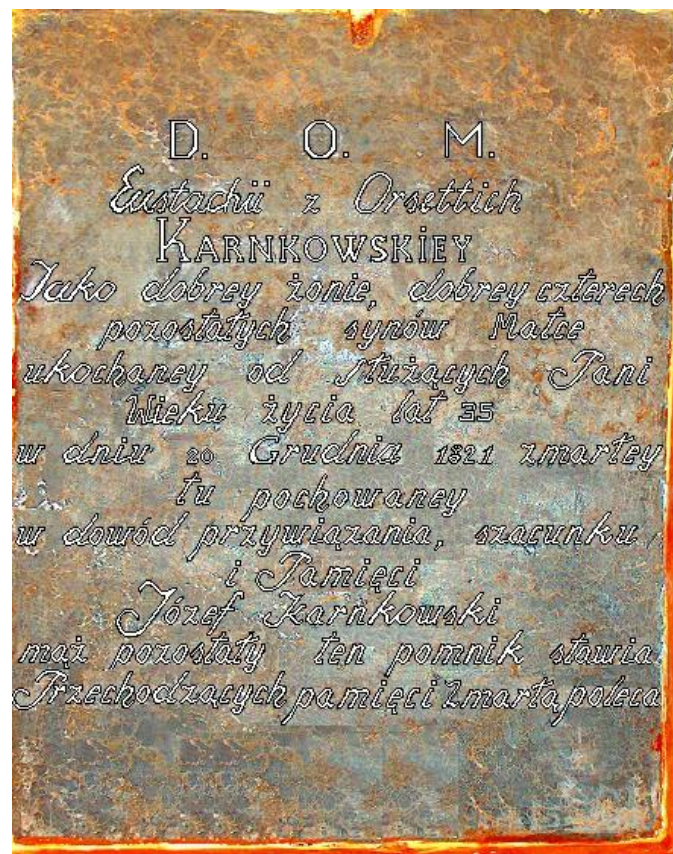 D. O. M.
Eustachii z Orsettich
KARNKOWSKIEY
Jako dobrey żonie, dobrey czterech
pozostałych synów Matce
ukochaney od służących Pani
Wieku życia lat 35
w dniu 20 Grudnia 1821 zmarłey
tu pochowaney
w dowód przywiązania, szacunku,
i Pamięci
Józef Karńkowski
mąż pozostały ten pomnik stawia
Przechodzących pamięci Zmarłą poleca